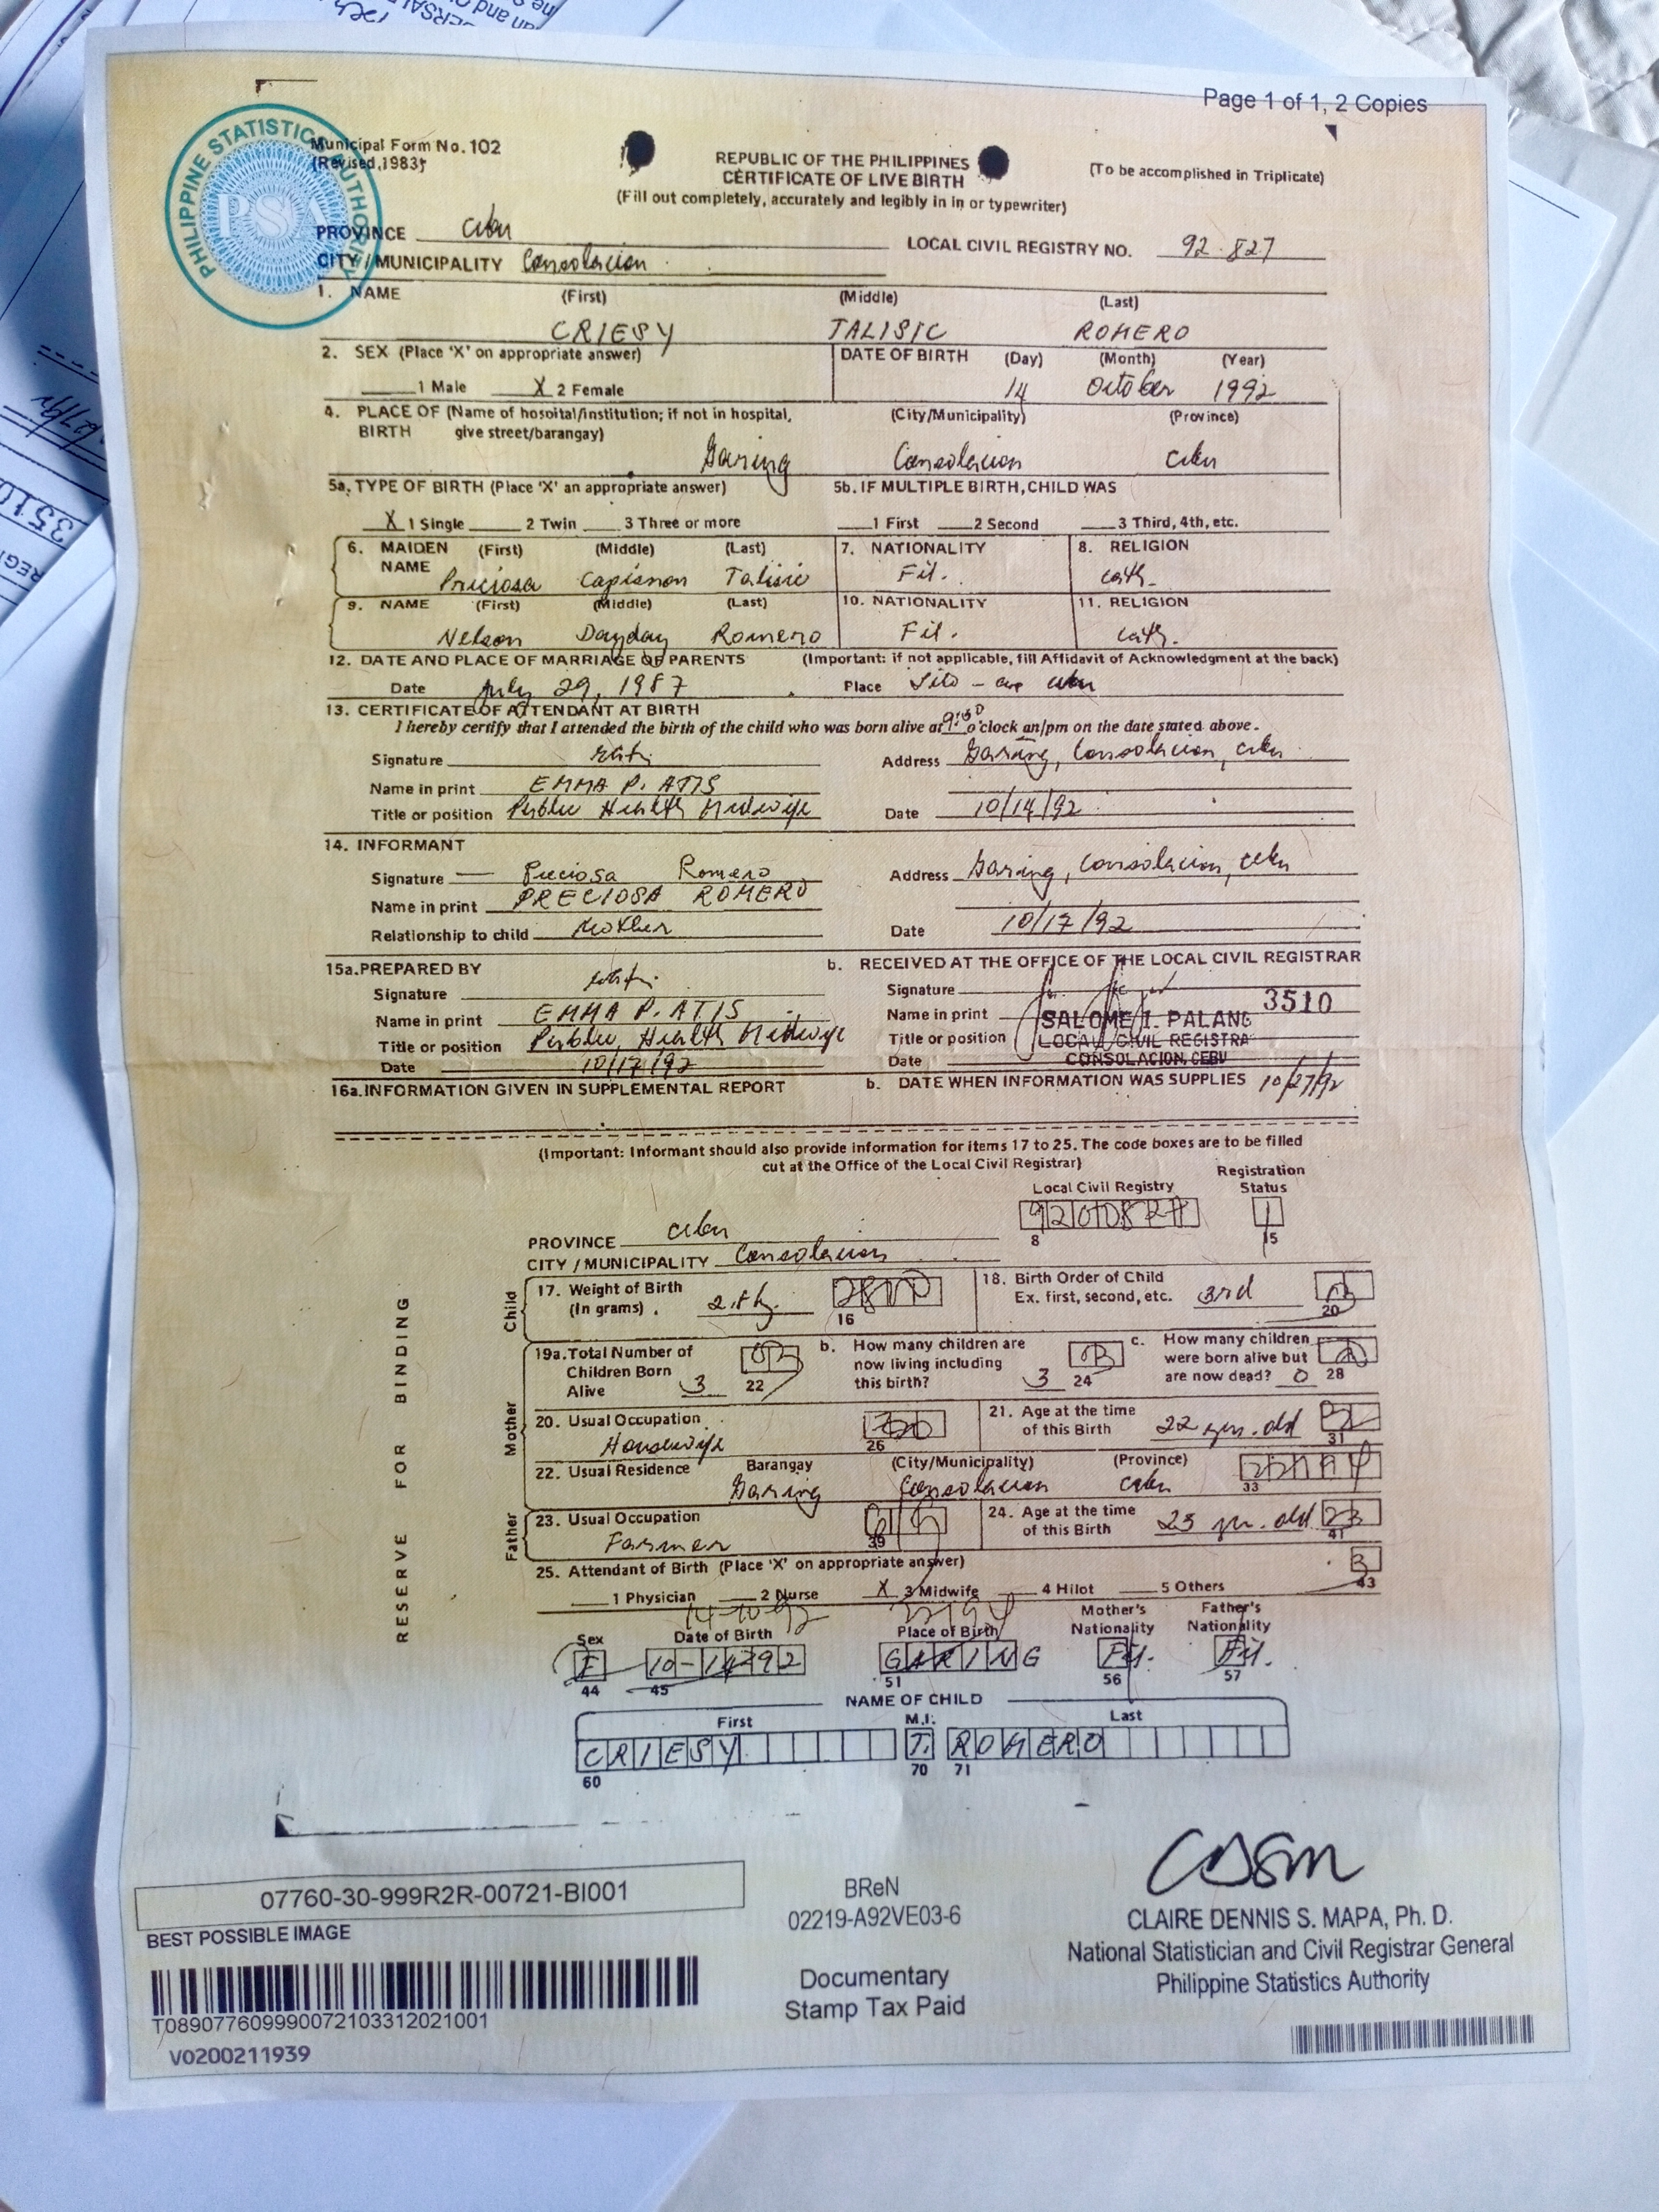 Page 1 of 1, 2 Copies
PHILIPPINE STATISTICS AUTHORITY
PSA
Municipal Form No. 102
(Revised, 1983)
REPUBLIC OF THE PHILIPPINES
CERTIFICATE OF LIVE BIRTH
(Fill out completely, accurately and legibly in in or typewriter)
(To be accomplished in Triplicate)
PROVINCE Cebu
LOCAL CIVIL REGISTRY NO. 92-827
CITY / MUNICIPALITY Consolacion
1. NAME (First) (Middle) (Last)
CRIESY TALISIC ROMERO
2. SEX (Place 'X' on appropriate answer) DATE OF BIRTH (Day) (Month) (Year)
1 Male X 2 Female 14 October 1992
4. PLACE OF BIRTH (Name of hosoital/institution; if not in hospital, give street/barangay) (City/Municipality) (Province)
Garing Consolacion Cebu
5a. TYPE OF BIRTH (Place 'X' an appropriate answer) 5b. IF MULTIPLE BIRTH, CHILD WAS
X 1 Single 2 Twin 3 Three or more 1 First 2 Second 3 Third, 4th, etc.
6. MAIDEN NAME (First) (Middle) (Last) 7. NATIONALITY 8. RELIGION
Preciosa Capisnon Talisic Fil. Cath.
9. NAME (First) (Middle) (Last) 10. NATIONALITY 11. RELIGION
Nelson Dayday Romero Fil. Cath.
12. DATE AND PLACE OF MARRIAGE OF PARENTS (Important: if not applicable, fill Affidavit of Acknowledgment at the back)
Date July 29, 1987 Place Cebu
13. CERTIFICATE OF ATTENDANT AT BIRTH
I hereby certify that I attended the birth of the child who was born alive at o'clock an/pm on the date stated above.
Signature Address Garing, Consolacion, Cebu
Name in print EMMA P. ATIS
Title or position Public Health Midwife Date 10/14/92
14. INFORMANT
Signature Preciosa Romero Address Garing, Consolacion, Cebu
Name in print PRECIOSA ROMERO
Relationship to child Mother Date 10/17/92
15a. PREPARED BY b. RECEIVED AT THE OFFICE OF THE LOCAL CIVIL REGISTRAR
Signature Signature
Name in print EMMA P. ATIS Name in print SALOME I. PALANG 3510
Title or position Public Health Midwife Title or position LOCAL CIVIL REGISTRA
Date 10/17/92 Date CONSOLACION, CEBU
16a. INFORMATION GIVEN IN SUPPLEMENTAL REPORT b. DATE WHEN INFORMATION WAS SUPPLIES 10/27/92
(Important: Informant should also provide information for items 17 to 25. The code boxes are to be filled
cut at the Office of the Local Civil Registrar)
Local Civil Registry Registration Status
8 15
PROVINCE Cebu
CITY / MUNICIPALITY Consolacion
Child
17. Weight of Birth (In grams) 16
18. Birth Order of Child Ex. first, second, etc. 3rd 20
Mother
19a. Total Number of Children Born Alive 3 22
b. How many children are now living including this birth? 3 24
c. How many children were born alive but are now dead? 0 28
20. Usual Occupation Housewife 26
21. Age at the time of this Birth 22 yrs. old 31
22. Usual Residence Barangay (City/Municipality) (Province)
Garing Consolacion Cebu 33
Father
23. Usual Occupation Farmer 39
24. Age at the time of this Birth 23 yr. old 23 41
25. Attendant of Birth (Place 'X' on appropriate answer) 3
1 Physician 2 Nurse X 3 Midwife 4 Hilot 5 Others 43
14-10-92
Sex Date of Birth Place of Birth Mother's Nationality Father's Nationality
F 10-14-92 GARING Fil. Fil.
44 45 51 56 57
NAME OF CHILD
First M.I. Last
CRIESY T. ROMERO
60 70 71
RESERVE FOR BINDING
07760-30-999R2R-00721-BI001
BEST POSSIBLE IMAGE
T089077609990072103312021001
V0200211939
BReN
02219-A92VE03-6
Documentary
Stamp Tax Paid
CLAIRE DENNIS S. MAPA, Ph. D.
National Statistician and Civil Registrar General
Philippine Statistics Authority